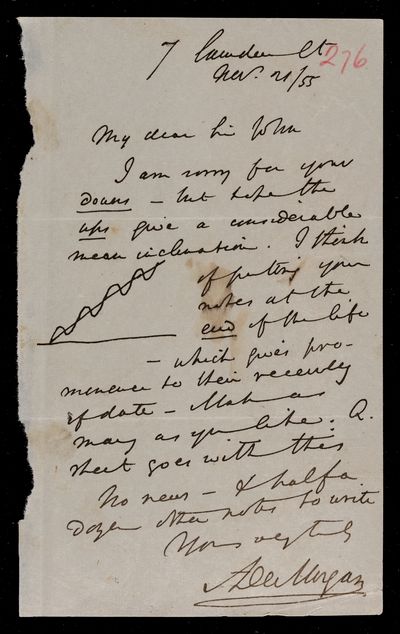 7 Camden St
276
Nov. 21/55
My dear Sir John
I am sorry for your
downs – but hope the
ups give a considerable
mean inclination. I think
of putting your
notes at the
end of the life
– which gives pro-
minence to their recency
of date – Make as
many as you like. A.
sheet goes with this
No news – & half a
dozen other notes to write
Yours
ADeMorgan